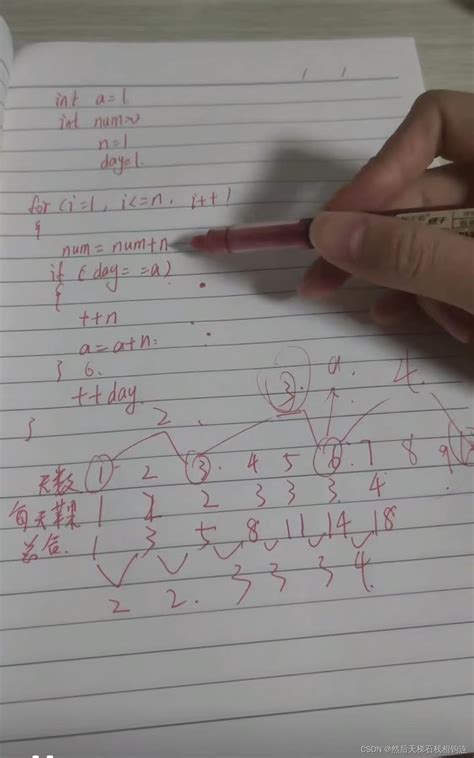 int a=1
int num=0
n=1
day=1.
for (i=1, i<=n, i++)
{
num = num+n
if (day==a)
{
++n
a=a+n;
} 6.
++day.
}
2. 3. a. 4.
天数 1 2 3. 4 5 6. 7 8 9
每天苹果 1 2 2 3 3 3. 4
总合. 1 3 5 8 11 14 18
2 2. 3 3 3 4.
CSDN @然后天梯石栈相钩连